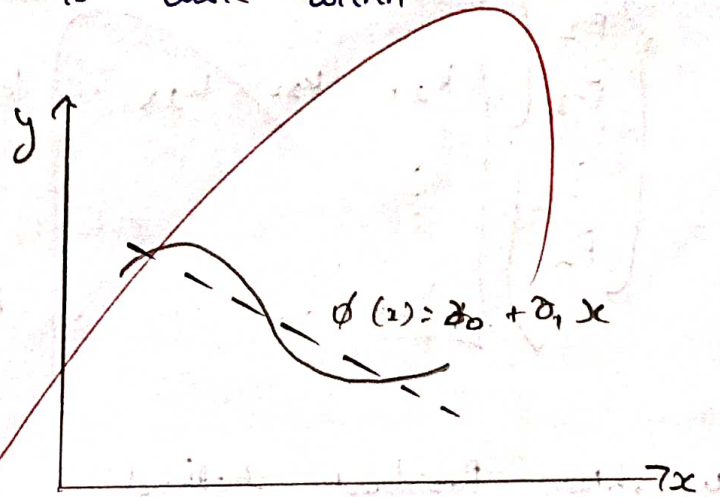 y
ϕ (x) = a₀ + a₁ x
x